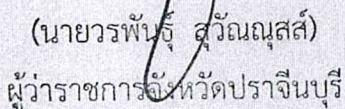 (นายวรพันธุ์ สุวัณณุสส์)
ผู้ว่าราชการจังหวัดปราจีนบุรี